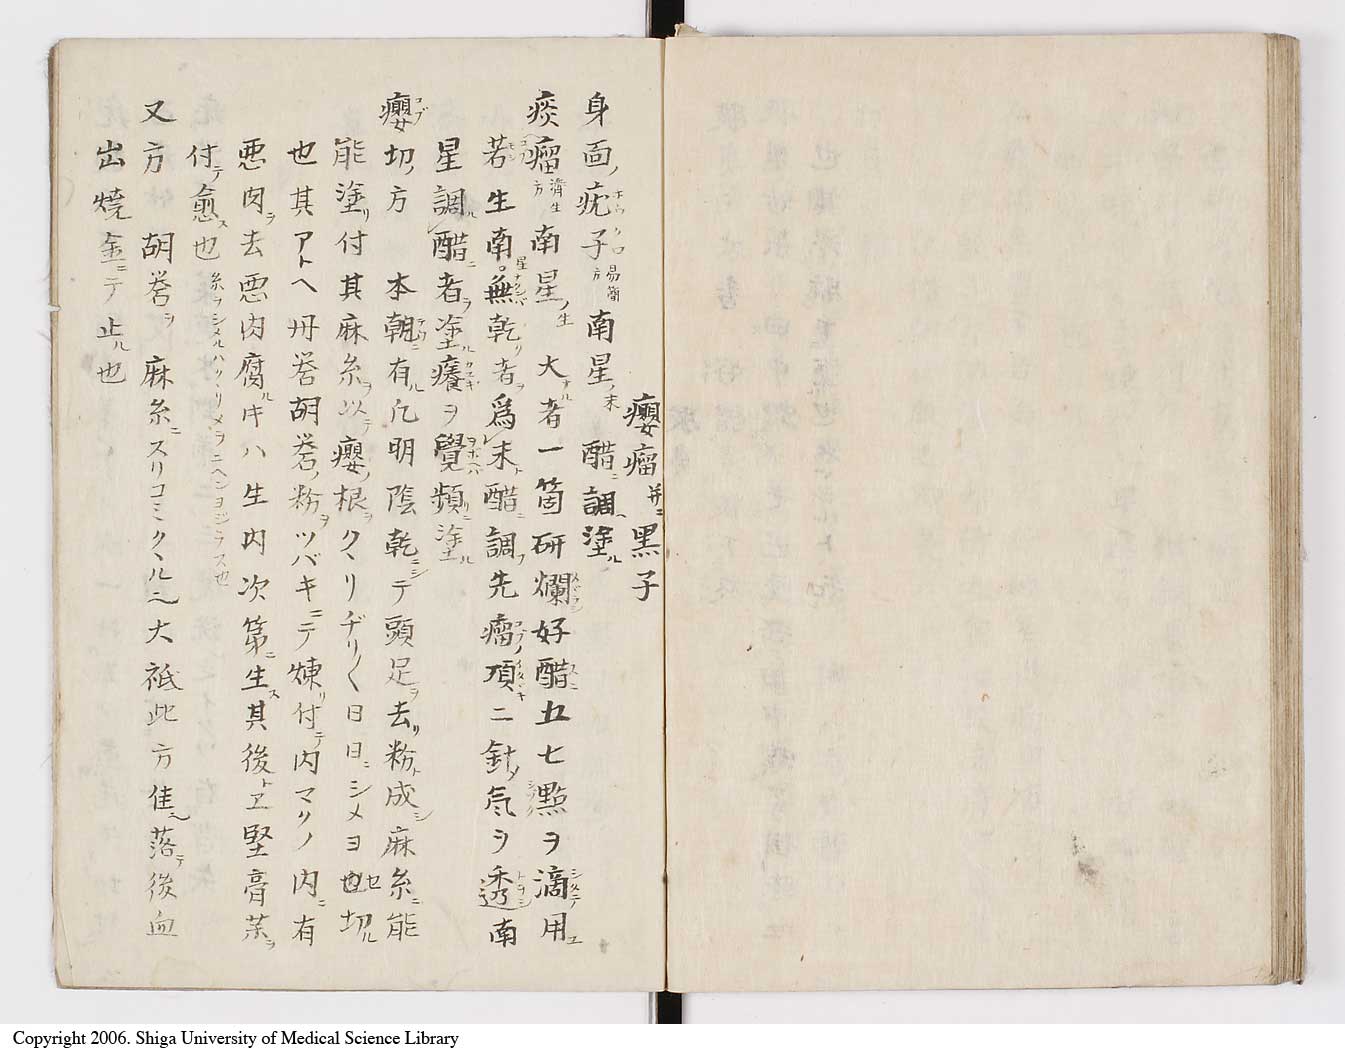 癭瘤 并ニ 黒子
身面ノ疣子 易簡方 南星ノ末 醋ニ調ヘ塗ル
痰瘤 済生方 南星ノ生 大ナル者一箇研爛好醋五七點ヲ滴用エ
若生南星無乾リ者ヲ為末ト醋ニ調フ先瘤項ニ針メ気ヲ透南
星調ル醋ニ者ヲ塗ル癢ヲ覺頻リニ塗ル
癭切ノ方 本朝ニ有ル凡明陰乾ニシテ頭足ヲ去リ粉ト成シ麻糸ニ能
能塗リ付其麻糸ヲ以テ癭ノ根ヲクヽリヂリ〳〵日日ニシメヨ也切ル
也其アトヘ丹礬胡礬ノ粉ヲツバキニテ煉リ付テ内マクノ内ニ有
悪肉ヲ去悪肉腐ルキハ生内次第ニ生ス其後トヱ堅膏薬ヲ
付テ愈ス也
又方 胡礬ヲ麻糸ニスリコミクヽル二大祗此方佳落テ後血
出焼金ニテ止ル也
Copyright 2006. Shiga University of Medical Science Library